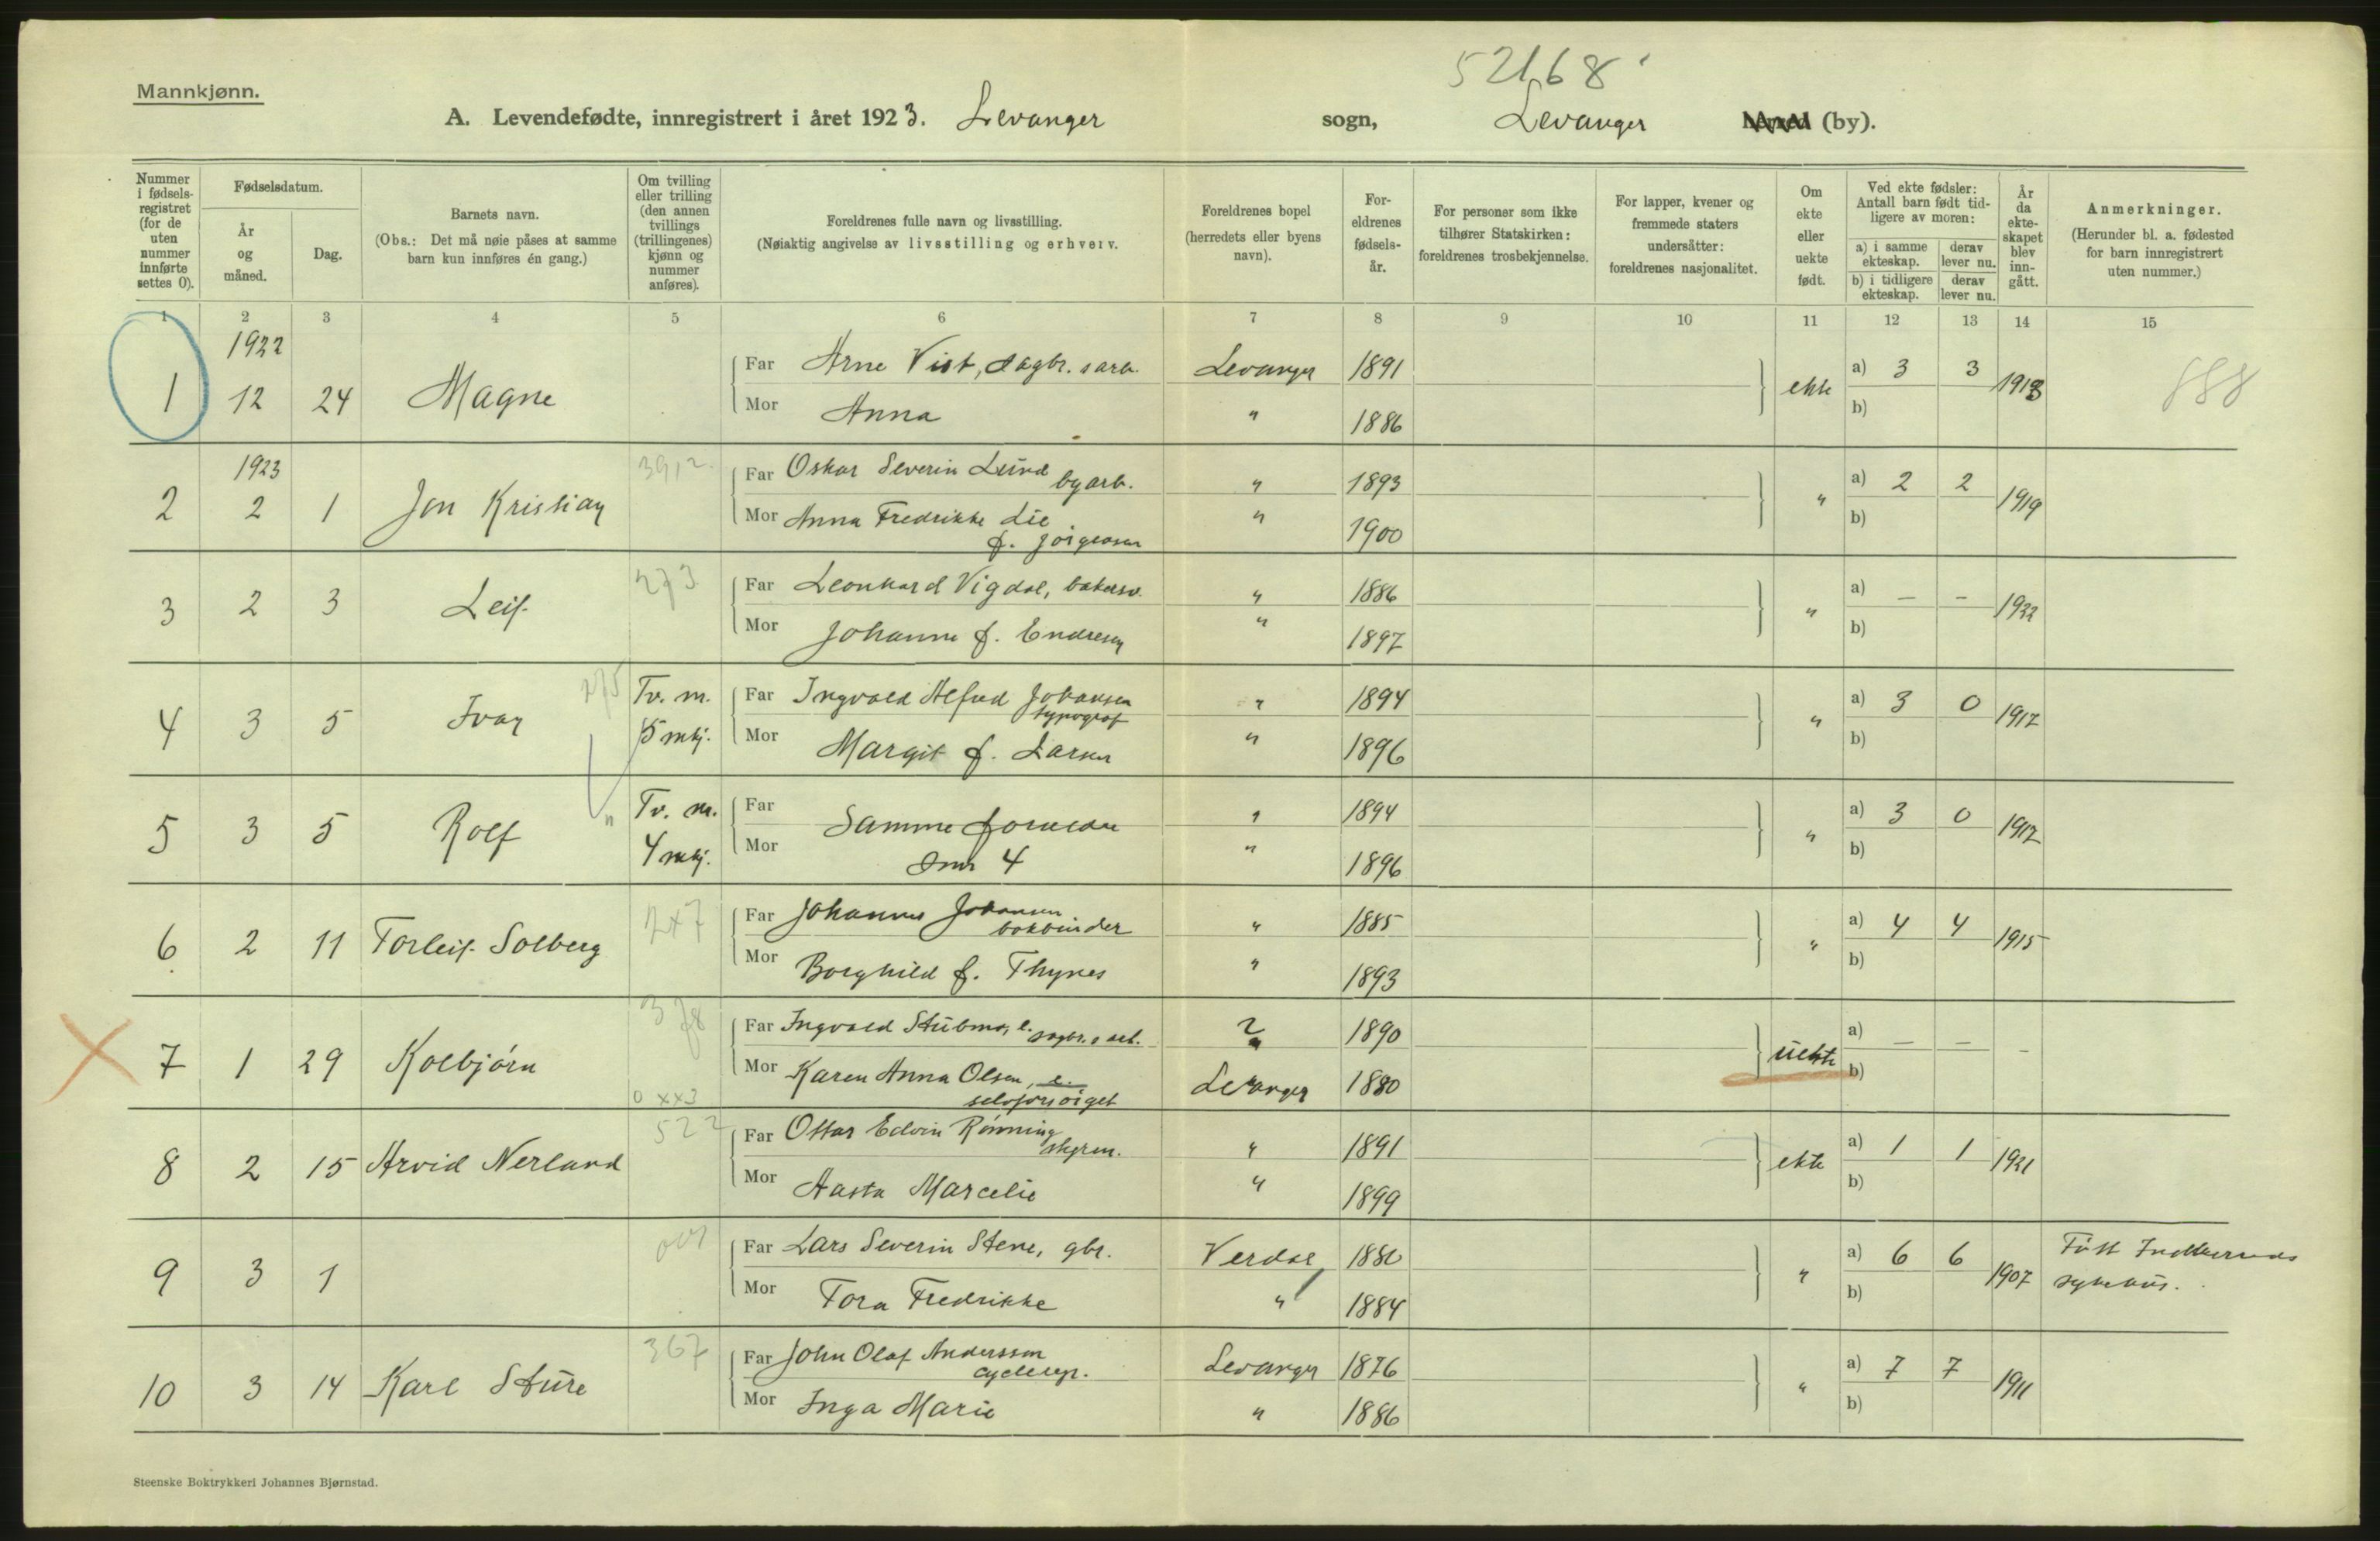 52168
Mannkjønn.
A. Levendefødte, innregistrert i året 1923. Levanger sogn, Levanger herred (by).
Nummer i fødsels-registret (for de uten nummer innførte settes 0).
Fødselsdatum.
År og måned.
Dag.
Barnets navn.
(Obs.: Det må nøie påses at samme barn kun innføres én gang.)
Om tvilling eller trilling (den annen tvillings (trillingenes) kjønn og nummer anføres).
Foreldrenes fulle navn og livsstilling.
(Nøiaktig angivelse av livsstilling og erhverv.
Foreldrenes bopel (herredets eller byens navn).
For-eldrenes fødsels-år.
For personer som ikke tilhører Statskirken: foreldrenes trosbekjennelse.
For lapper, kvener og fremmede staters undersåtter: foreldrenes nasjonalitet.
Om ekte eller uekte født.
Ved ekte fødsler: Antall barn født tid-ligere av moren:
a) i samme ekteskap.
derav lever nu.
b) i tidligere ekteskap.
derav lever nu.
År da ekte-skapet blev inn-gått.
Anmerkninger.
(Herunder bl. a. fødested for barn innregistrert uten nummer.)
1 2 3 4 5 6 7 8 9 10 11 12 13 14 15
1922
1 12 24 Magne Far Arne Vist, dagbr. sarb. Levanger 1891 ekte a) 3 3 1913 888
Mor Anna " 1886 b)
1923
2 2 1 Jon Kristian 3912 Far Oskar Severin Lund byarb. " 1893 " a) 2 2 1919
Mor Anna Fredrikke Lie f. Jörgensen " 1900 b)
3 2 3 Leif 273 Far Leonhard Vigdal, bakersv. " 1886 " a) – – 1922
Mor Johanne f. Endresen " 1897 b)
4 3 5 Ivar Tv. m. 5 mkj. Far Ingvald Alfred Johansen typograf " 1894 " a) 3 0 1917
Mor Margit f. Larsen " 1896 b)
5 3 5 Rolf " Tv. m. 4 mkj. Far Samme foreldre " 1894 " a) 3 0 1917
Mor som 4 " 1896 b)
6 2 11 Torleif Solberg 2x7 Far Johannes Johansen bokbinder " 1885 " a) 4 4 1915
Mor Borghild f. Thynes " 1893 b)
7 1 29 Kolbjörn Far Ingvald Stubmo, e. ? 1890 uekte a) – – –
0 xx3 Mor Karen Anna Olsen, e. selvforsörget Levanger 1880 b)
8 2 15 Arvid Nerland 522 Far Ottar Edvin Rönning " 1891 ekte a) 1 1 1921
Mor Aasta Marcelie " 1899 b)
9 3 1 Far Lars Severin Stene, gbr. Verdal 1880 " a) 6 6 1907 Fött Indherreds sykehus.
Mor Tora Fredrikke " 1884 b)
10 3 14 Karl Sture 367 Far John Olaf Andersson cyclerep. Levanger 1876 " a) 7 7 1911
Mor Inga Marie " 1886 b)
Steenske Boktrykkeri Johannes Bjørnstad.